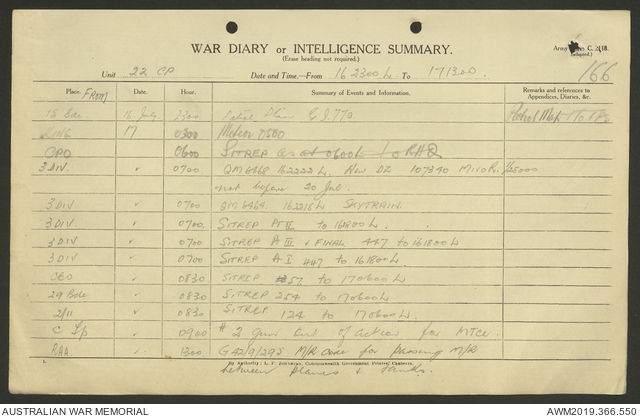 WAR DIARY or INTELLIGENCE SUMMARY.
(Erase heading not required.)
Army C. 2118.
(adapted.)
166
Unit 22 CP Date and Time.—From 16 2300 L To 171300
Place. From Date. Hour. Summary of Events and Information. Remarks and references to Appendices, Diaries, &c.
15 Bde 16 July 2300 Patrol Plan
17 0300 Meteor 0500
CPO 0600 SITREP as at 0600L to RHQ
3 DIV. 0700 QM6468 162222L. New DZ 107340 M110R. 1/25000
not before 20 Jul.
3 DIV. " 0700 QM6464 162218L SKYTRAIN.
3 DIV. " 0700. SITREP PT II to 161800L.
3 DIV. " 0700 SITREP A III & FINAL 447 to 161800L
3 DIV. " 0700 SITREP A I 447 to 161800L
CBO " 0830 SITREP 57 to 170600L
29 Bde " 0830 SITREP 254 to 170600L
2/11 " 0830 SITREP 124 to 170600L
C Tp " 0900 # 2 Gun out of action for
RAA " 1300 G42/9/295 M/R Code for passing M/R
between planes & tanks.
1. By Authority: L. F. Johnston, Commonwealth Government Printer, Canberra.
AUSTRALIAN WAR MEMORIAL AWM2019.366.550